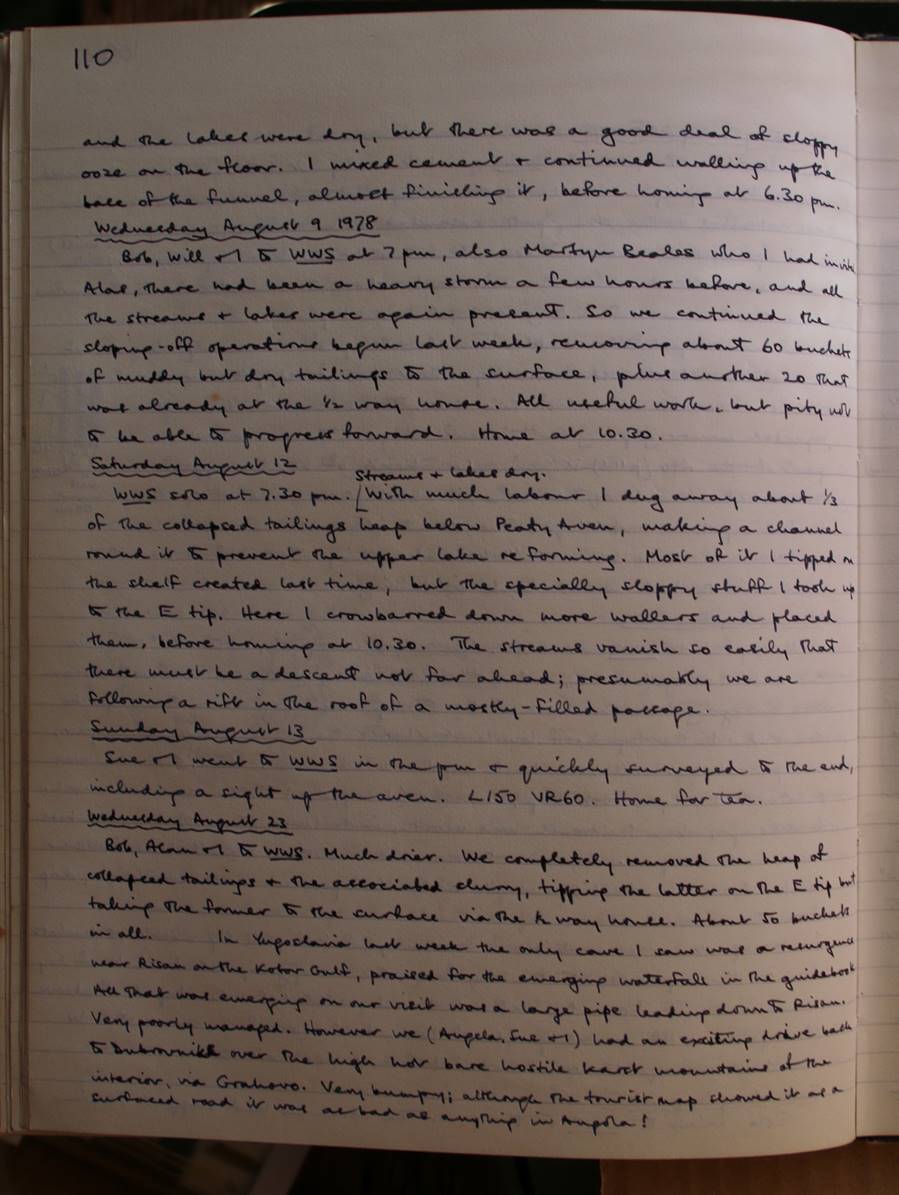 110
and the lakes were dry, but there was a good deal of sloppy
ooze on the floor. I mixed cement + continued walling up the
base of the funnel, almost finishing it, before homing at 6.30 pm.
Wednesday August 9 1978
Bob, Will + I to WWS at 7 pm, also Martyn Beales who I had
Alas, there had been a heavy storm a few hours before, and all
the streams + lakes were again present. So we continued the
sloping-off operations begun last week, removing about 60 buckets
of muddy but dry tailings to the surface, plus another 20 that
was already at the 1/2 way house. All useful work, but pity not
to be able to progress forward. Home at 10.30.
Saturday August 12
Streams + lakes dry.
WWS solo at 7.30 pm. [With much labour I dug away about 1/3
of the collapsed tailings heap below Peaty Aven, making a channel
round it to prevent the upper lake reforming. Most of it I tipped on
the shelf created last time, but the specially sloppy stuff I took up
to the E tip. Here I crowbarred down more wallers and placed
them, before homing at 10.30. The streams vanish so easily that
there must be a descent not far ahead; presumably we are
following a rift in the roof of a mostly-filled passage.
Sunday August 13
Sue + I went to WWS in the pm + quickly surveyed to the end,
including a sight up the aven. L150 VR60. Home for tea.
Wednesday August 23
Bob, Alan + I to WWS. Much drier. We completely removed the heap of
collapsed tailings + the associated slurry, tipping the latter on the E tip but
taking the former to the surface via the 1/2 way house. About 50 buckets
in all. In Yugoslavia last week the only cave I saw was a resurgence
near Risan on the Kotor Gulf, praised for the emerging waterfall in the guidebook
All that was emerging on our visit was a large pipe leading down to Risan.
Very poorly managed. However we (Angela, Sue + I) had an exciting drive back
to Dubrovnik over the high hot bare hostile karst mountains of the
interior, via Grahovo. Very bumpy; although the tourist map showed it as a
surfaced road it was as bad as anything in Angola!